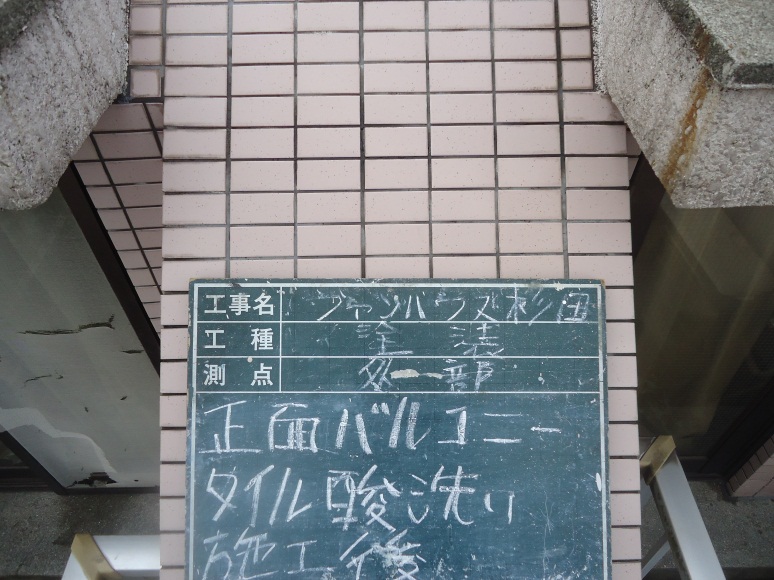 工事名 ジャンハウス杉田
工種 塗装
測点 外部
正面バルコニー
タイル酸洗い
施工後